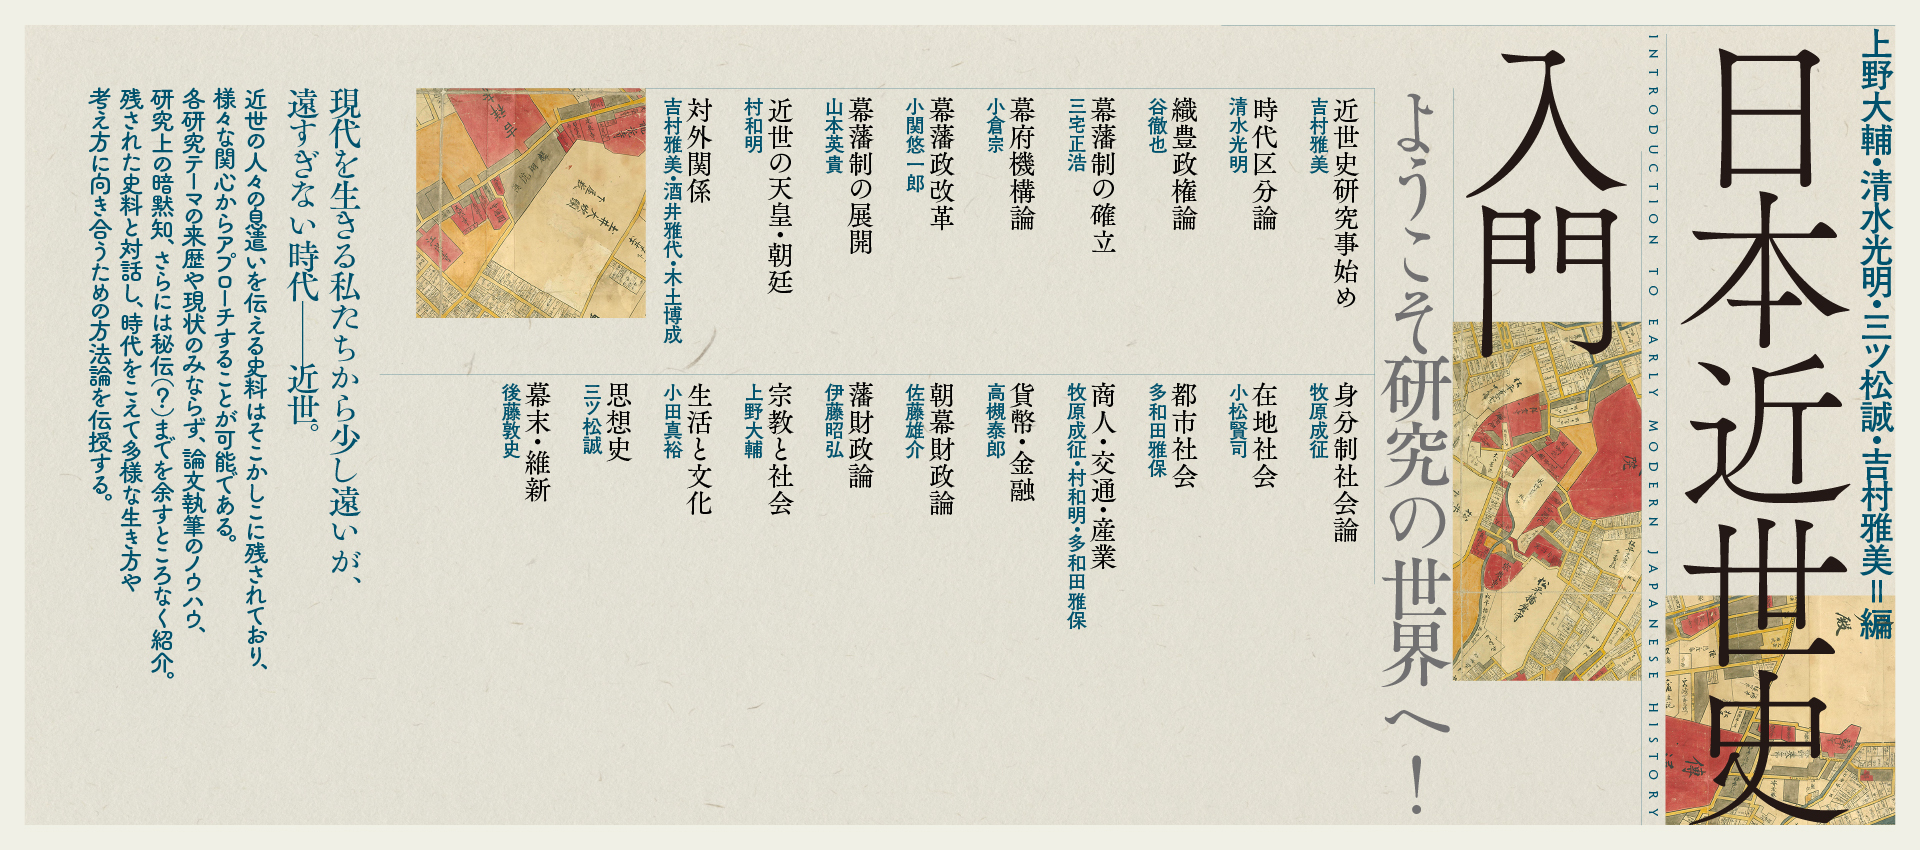 上野大輔・清水光明・三ツ松誠・吉村雅美＝編
日本近世史
INTRODUCTION TO EARLY MODERN JAPANESE HISTORY
入門
ようこそ研究の世界へ！
近世史研究事始め
吉村雅美
時代区分論
清水光明
織豊政権論
谷徹也
幕藩制の確立
三宅正浩
幕府機構論
小倉宗
幕藩政改革
小関悠一郎
幕藩制の展開
山本英貴
近世の天皇・朝廷
村和明
対外関係
吉村雅美・酒井雅代・木土博成
身分制社会論
牧原成征
在地社会
小松賢司
都市社会
多和田雅保
商人・交通・産業
牧原成征・村和明・多和田雅保
貨幣・金融
高槻泰郎
朝幕財政論
佐藤雄介
藩財政論
伊藤昭弘
宗教と社会
上野大輔
生活と文化
小田真裕
思想史
三ツ松誠
幕末・維新
後藤敦史
現代を生きる私たちから少し遠いが、
遠すぎない時代――近世。
近世の人々の息遣いを伝える史料はそこかしこに残されており、
様々な関心からアプローチすることが可能である。
各研究テーマの来歴や現状のみならず、論文執筆のノウハウ、
研究上の暗黙知、さらには秘伝（？）までを余すところなく紹介。
残された史料と対話し、時代をこえて多様な生き方や
考え方に向き合うための方法論を伝授する。